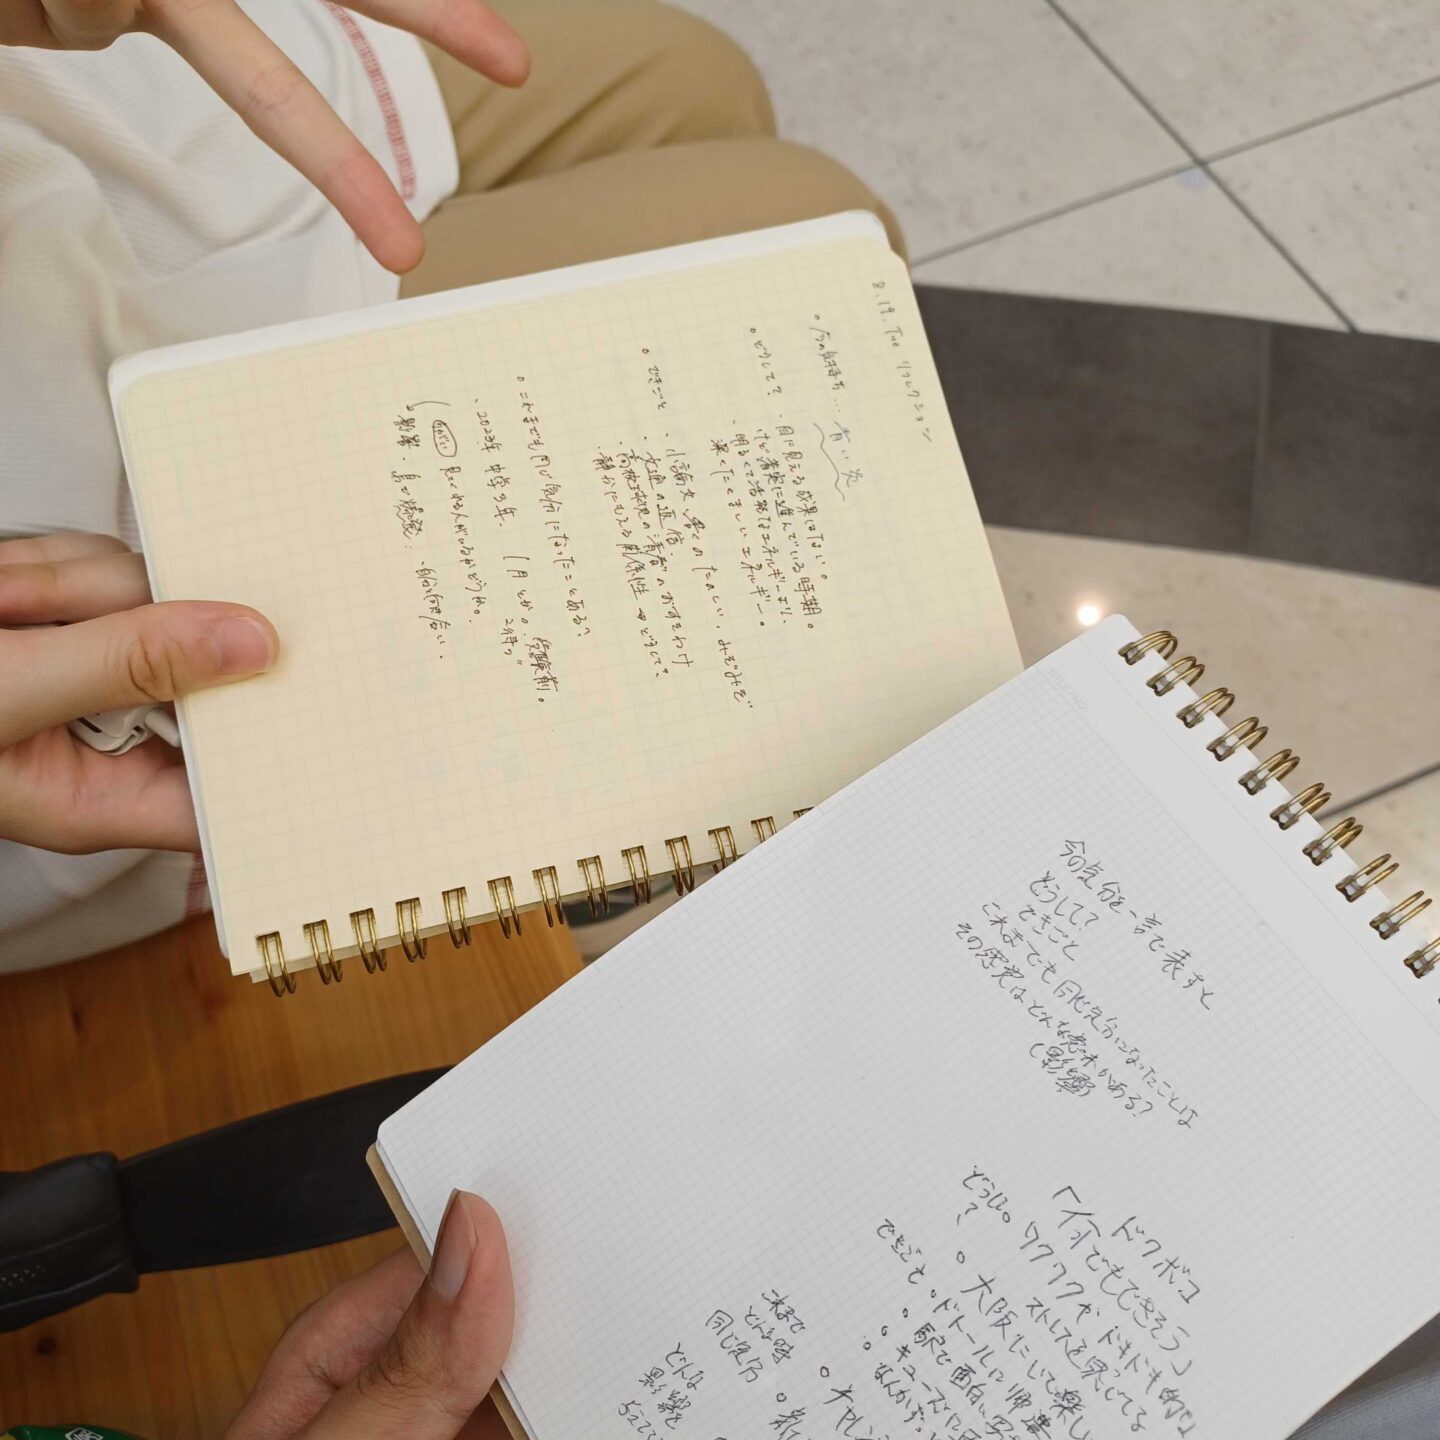 8.19. Tue リフレクション
。今の気持ち… 青い炎
。どうして? ・目に見える成果はない。
けど着実に進んでいる時期。
・明るくて活発なエネルギーより、
深くたくましいエネルギー。
。できごと ・小論文書くのたのしい、みぞみぞ
・文通の返信。
・高校球児の青春のおすそわけ
・静かにもえる関係性 どうして?
。これまでも同じ気分になったことある?
、2023年 中学3年、1月とか。受験前。
見てくれる人がいるかどうか。
。影響・
今の気分を一言で表すと
どうして?
できごと
これまでも同じ気分になったことは
その感覚はどんな意味がある?
(影響
ドクボコ
「何でもできそう」
どうして? 。ワクワクやドキドキ的な
ストレスを感じてる
。大阪にいて楽し
できごと 。ドトールに
。駅で面白い
。キューズ
なんか
これまで
どんな時
同じ気分
どんな
影響を